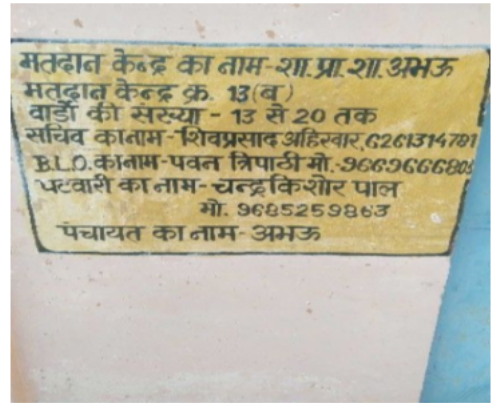 मतदान केन्द्र का नाम-शा.प्रा.शा.अभऊ
मतदान केन्द्र क्र. 13(ब)
वार्डो की संख्या - 13 से 20 तक
सचिव कानाम-शिवप्रसाद अहिरवार,6261314781
B.L.O.कानाम-पवन त्रिपाठी मो.-9669666803
पटवारी का नाम-चन्द्रकिशोर पाल
मो. 9685259863
पंचायत का नाम-अभऊ